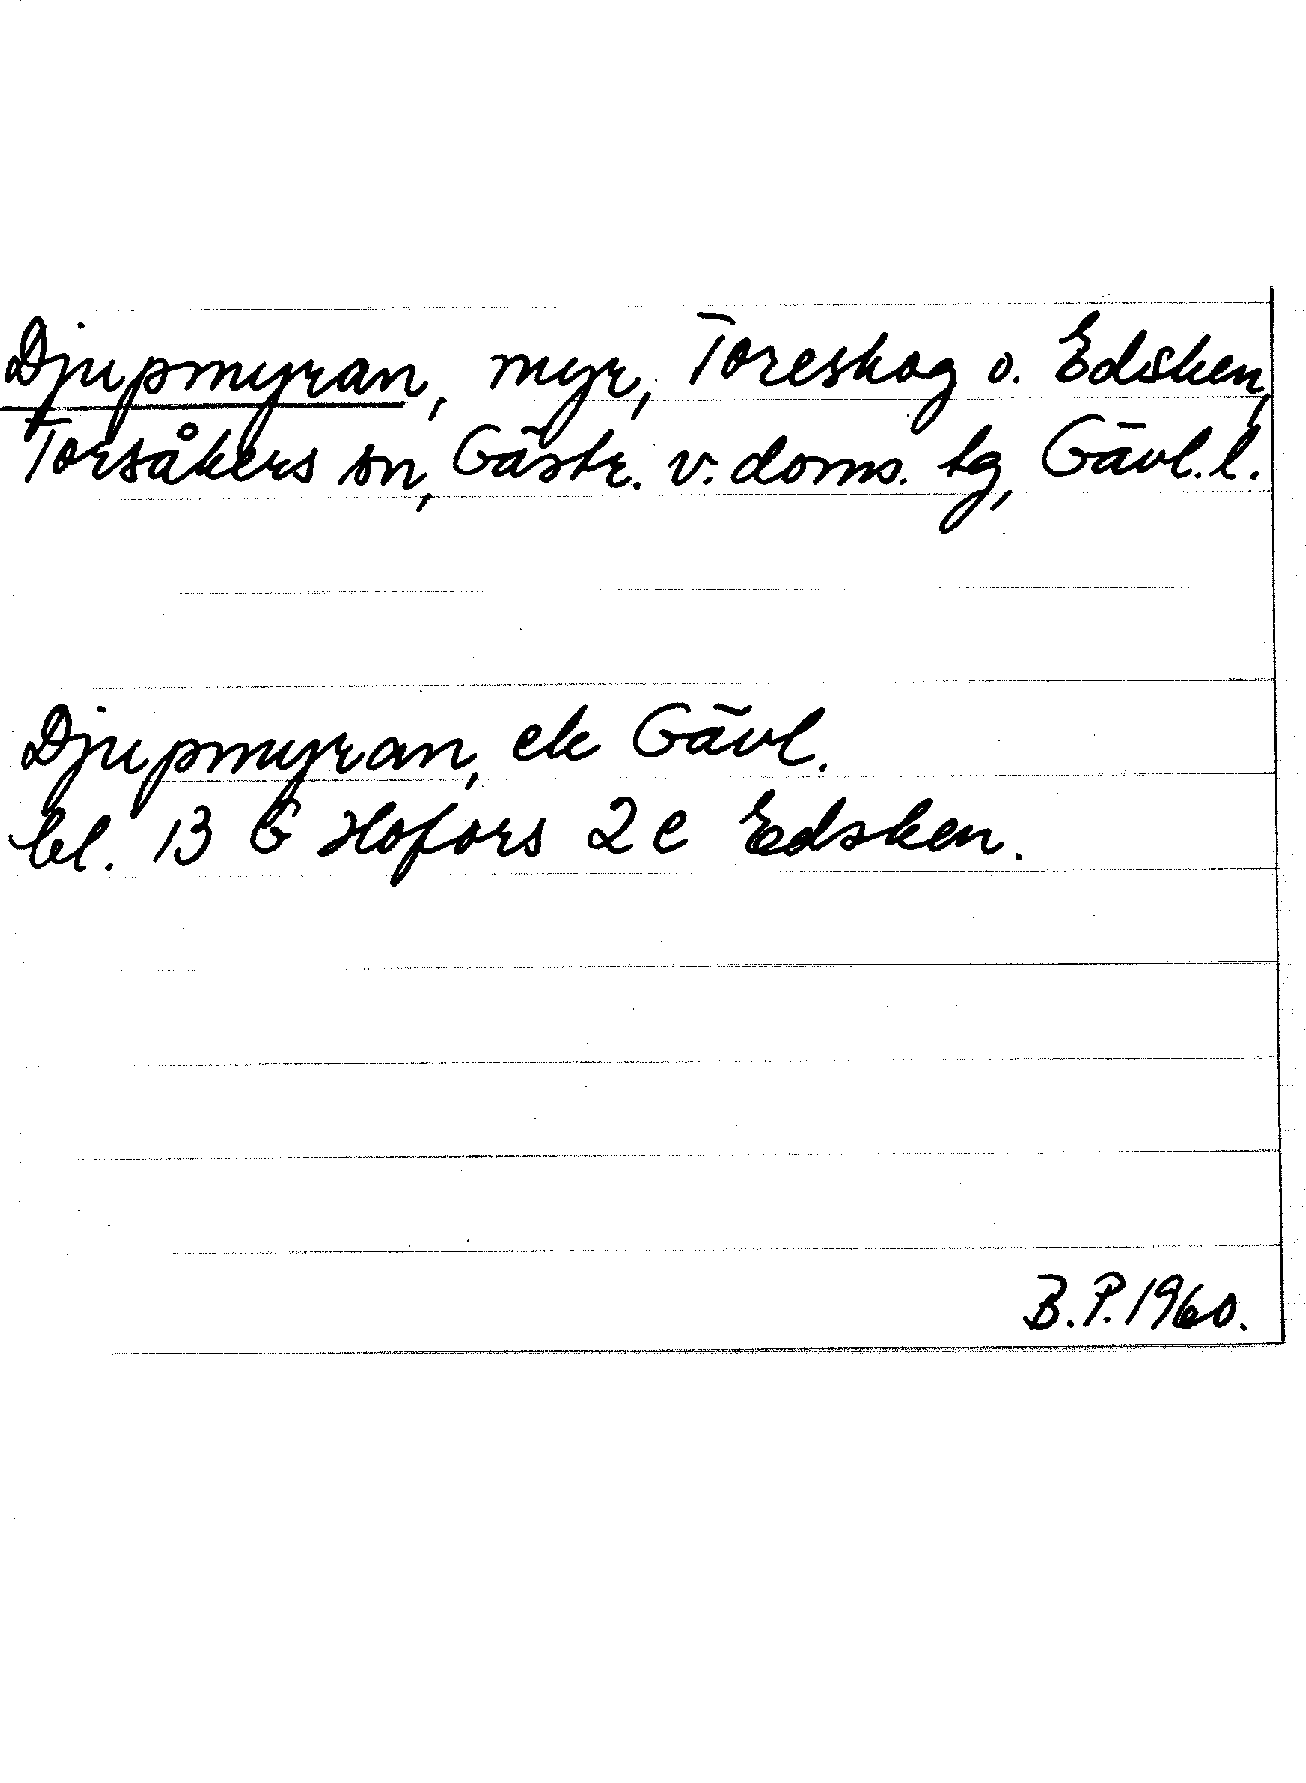 Djupmyran, myr, Toreskog o. Edsken,
Torsåkers sn, Gästr. v. doms. tg, Gävl. l.
Djupmyran, ek Gävl.
bl. 13 G Hofors 2 e Edsken.
B. P. 1960.